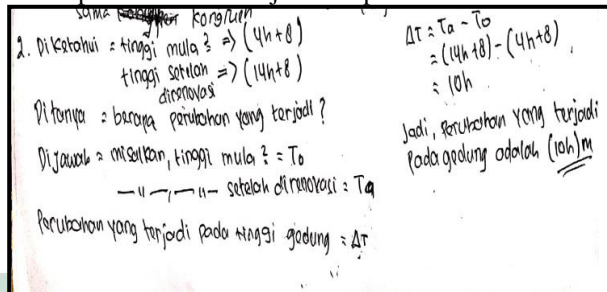 sama kongruen
2. Diketahui : tinggi mula² => (4h+8)
tinggi setelah => (14h+8)
direnovasi
Ditanya : berapa perubahan yang terjadi ?
Dijawab : misalkan, tinggi mula² = To
—"—,—"— setelah direnovasi = Ta
Perubahan yang terjadi pada tinggi gedung = ΔT
ΔT = Ta - To
= (14h+8) - (4h+8)
= 10h
Jadi, perubahan yang terjadi
pada gedung adalah (10h)m